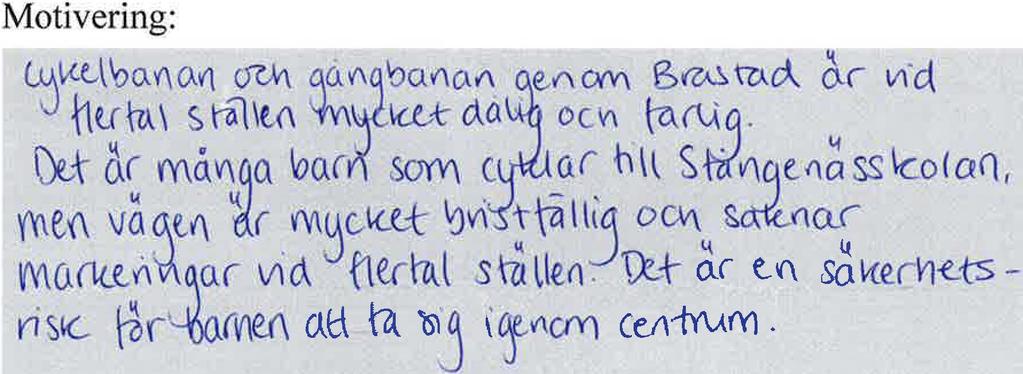 Motivering:
Cykelbanan och gångbanan genom Brastad är vid
flertal ställen mycket dålig och farlig.
Det är många barn som cyklar till Stångenässkolan,
men vägen är mycket bristfällig och saknar
markeringar vid flertal ställen. Det är en säkerhets-
risk för barnen att ta sig igenom centrum.